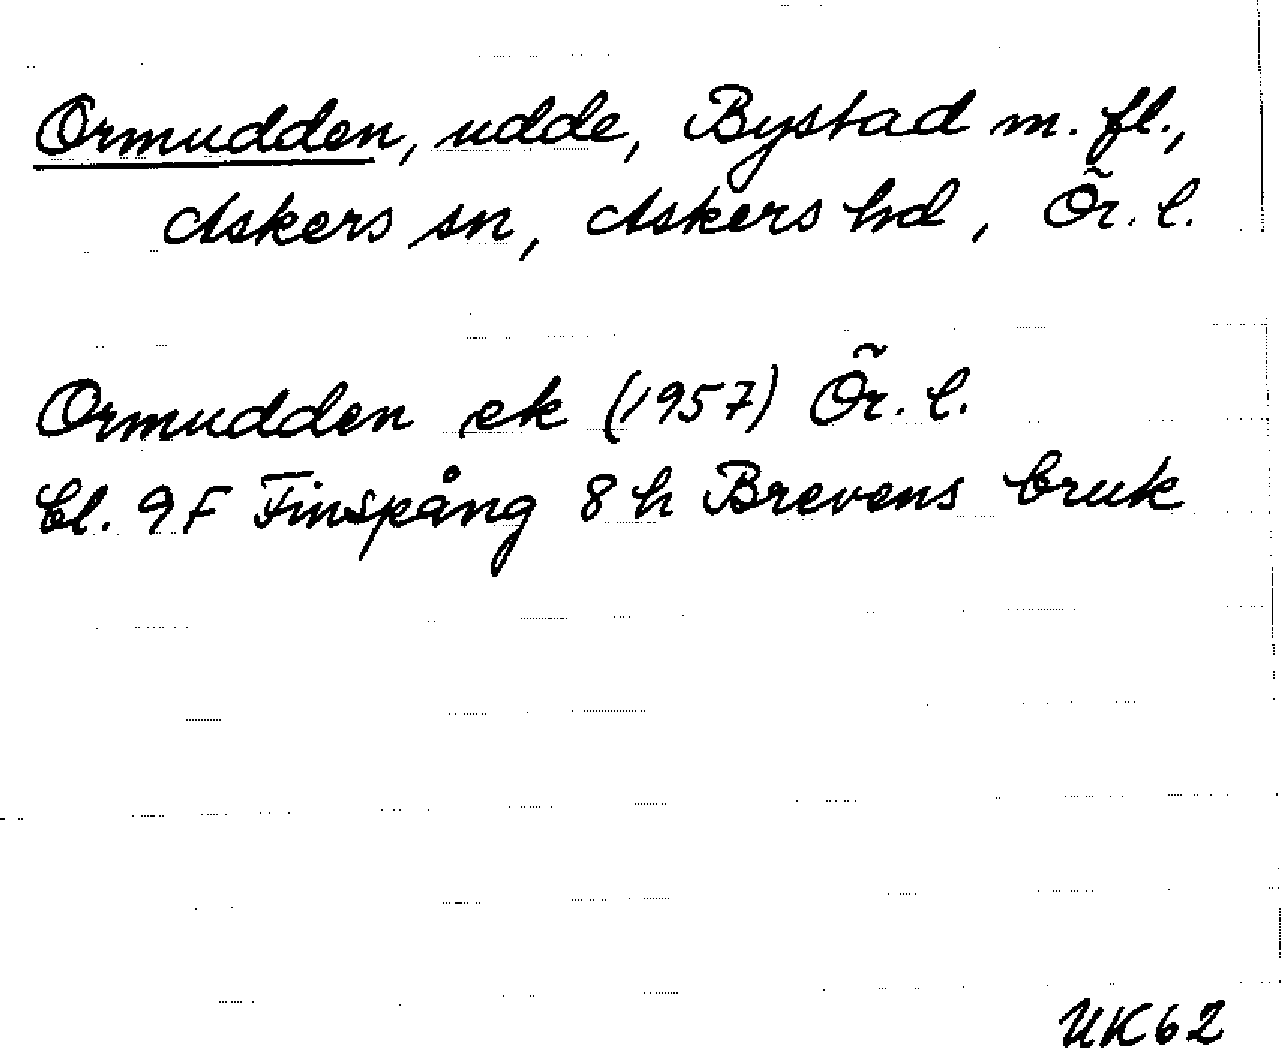 Ormudden, udde, Bystad m. fl.,
Askers sn, Askers hd, Ör. l.
Ormudden ek (1957) Ör. l.
bl. 9F Finspång 8h Brevens bruk
UK62